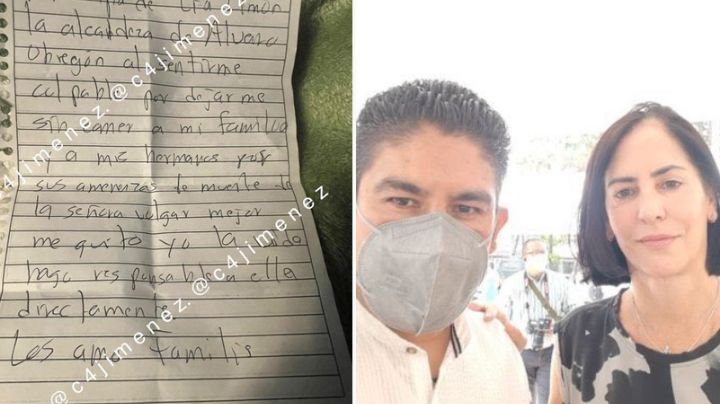 de Lia Limon
la alcaldeza de Alvaro
Obregón al sentirme
culpable por dejarme
sin comer a mi familia
y a mis hermanos por
sus amenazas de muerte de
la señora vulgar mejor
me quito yo la vida
hago responsable a ella
directamente
Los amo familia
@c4jimenez.@c4jimenez
c4jimenez
@c4jimenez.@c4jimenez